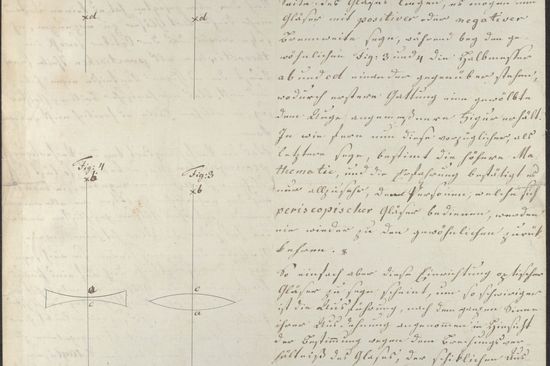 d
d
Fig: 4
b
Fig: 3
b
a
c
c
a
Seite des Glases liegen, es mögen nun
Gläser mit positiver oder negativer
Brennweite seyn, während bey den ge-
wöhnlichen Fig: 3 und 4 die Halbmesser
ab und cd einander gegenüber stehen,
wodurch erstere Gattung eine gewölbte
dem Auge angemeßnere Figur erhält.
In wie fern nun diese vorzüglicher, als
letztere seye, bestimt die höhere Ma-
thematic, und die Erfahrung bestätigt es
nur allzusehr, daß Personen, welche sich
periscopischer Gläser bedienen, werden
nie wieder zu den gewöhnlichen zurük
kehren.
So einfach aber diese Einrichtung optischer
Gläser zu seyn scheint, um so schwieriger
ist die Ausführung, nach dem ganzen Sinne
ihrer Ausdehnung angenommen in Hinsicht
der Bestimmung wegen dem Brechungsver-
hältniß des Glases, der schiklichen Aus